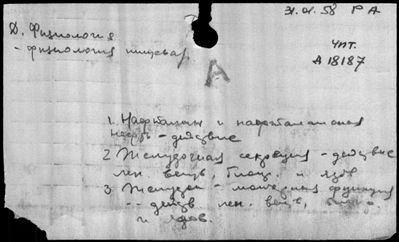 31.01.58 Р А
Д. Физиология
- физиология пищевар.
Чит.
А 18187
А
1. Нафталан и нафталанская
нефть - действие
2 Желудочная секреция - действие
лек. вещ., и ядов
3 Желудок - моторная функция
-- действ лек. вещ,
и ядов.